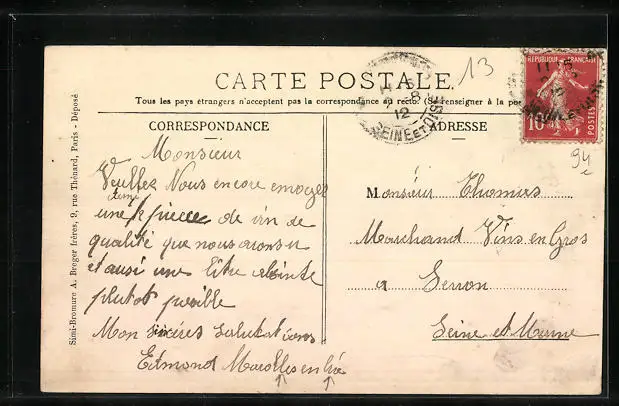 CARTE POSTALE
13
Tous les pays étrangers n'acceptent pas la correspondance au recto. (Se renseigner à la pos
CORRESPONDANCE
ADRESSE
SEINE ET OISE
12
REPUBLIQUE FRANÇAISE
10
POSTES
94
Simi-Bromure A. Breger frères, 9, rue Thénard, Paris - Déposé
Monsieur
Veuillez Nous encore envoyer
une demi pièce de vin de
qualité que nous avons eu
et ausi une litre absinte
plutot posible
Mon sincères salutations
Edmond Marolles en Brie
Monsieur Thomies
Marchand Vins en Gros
a Servon
Seine et Marne